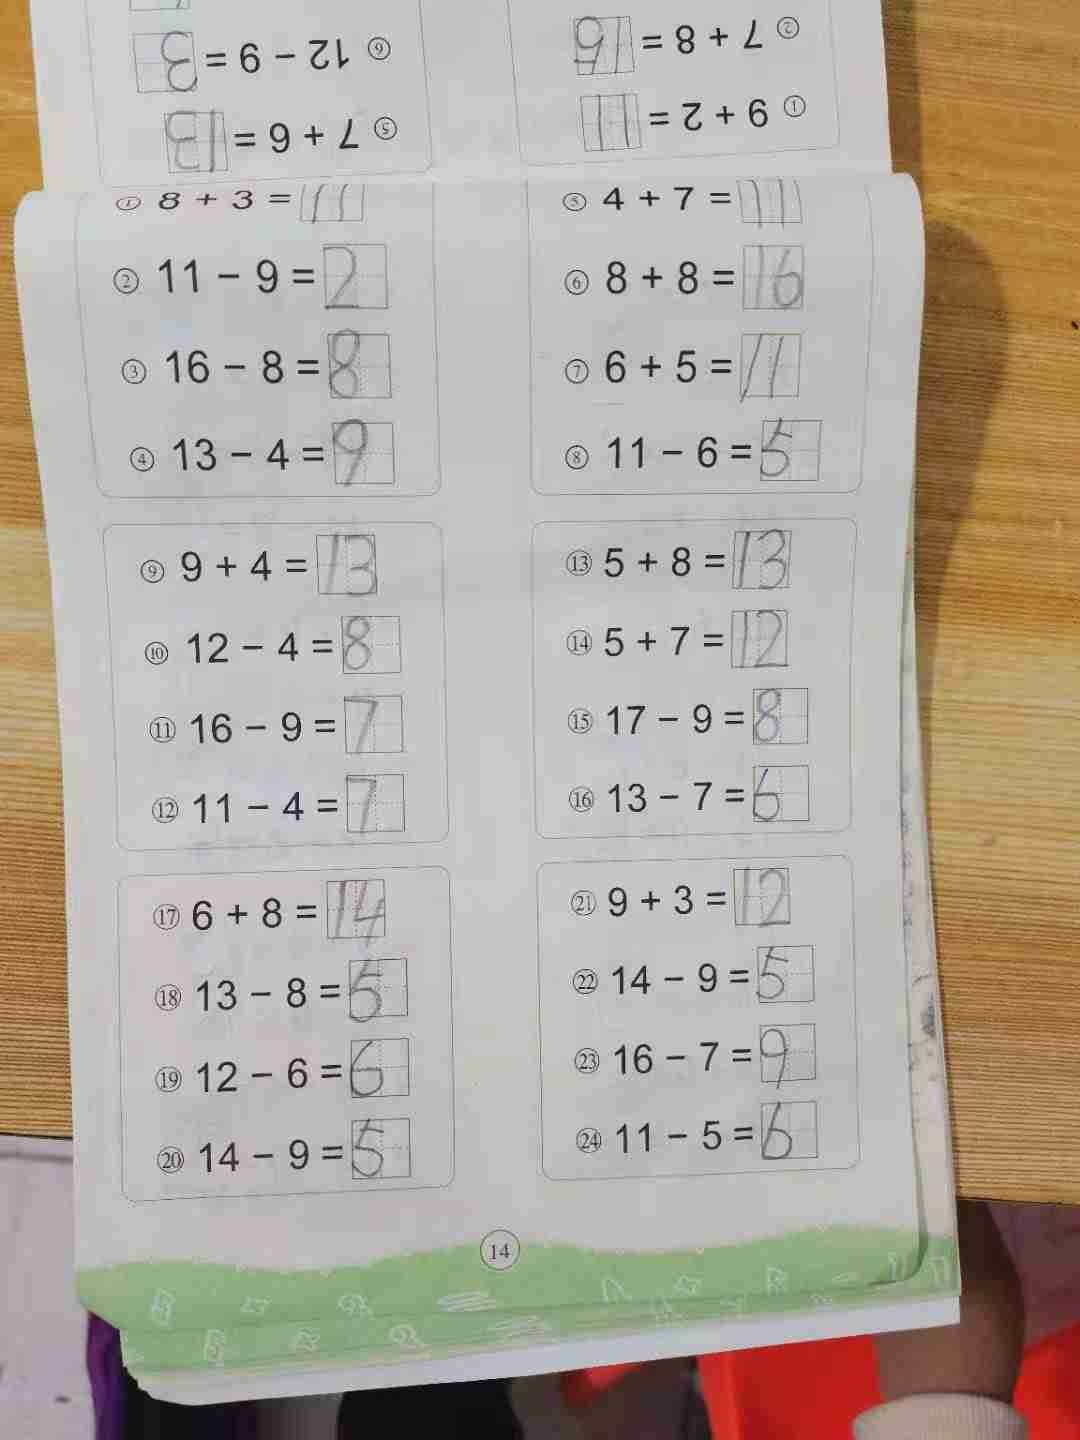 ⑥ 12 − 9 = 3
② 7 + 8 = 15
⑤ 7 + 6 = 13
① 9 + 2 = 11
① 8 + 3 = 11
⑤ 4 + 7 = 11
② 11 − 9 = 2
⑥ 8 + 8 = 16
③ 16 − 8 = 8
⑦ 6 + 5 = 11
④ 13 − 4 = 9
⑧ 11 − 6 = 5
⑨ 9 + 4 = 13
⑬ 5 + 8 = 13
⑩ 12 − 4 = 8
⑭ 5 + 7 = 12
⑪ 16 − 9 = 7
⑮ 17 − 9 = 8
⑫ 11 − 4 = 7
⑯ 13 − 7 = 6
⑰ 6 + 8 = 14
㉑ 9 + 3 = 12
⑱ 13 − 8 = 5
㉒ 14 − 9 = 5
⑲ 12 − 6 = 6
㉓ 16 − 7 = 9
⑳ 14 − 9 = 5
㉔ 11 − 5 = 6
14